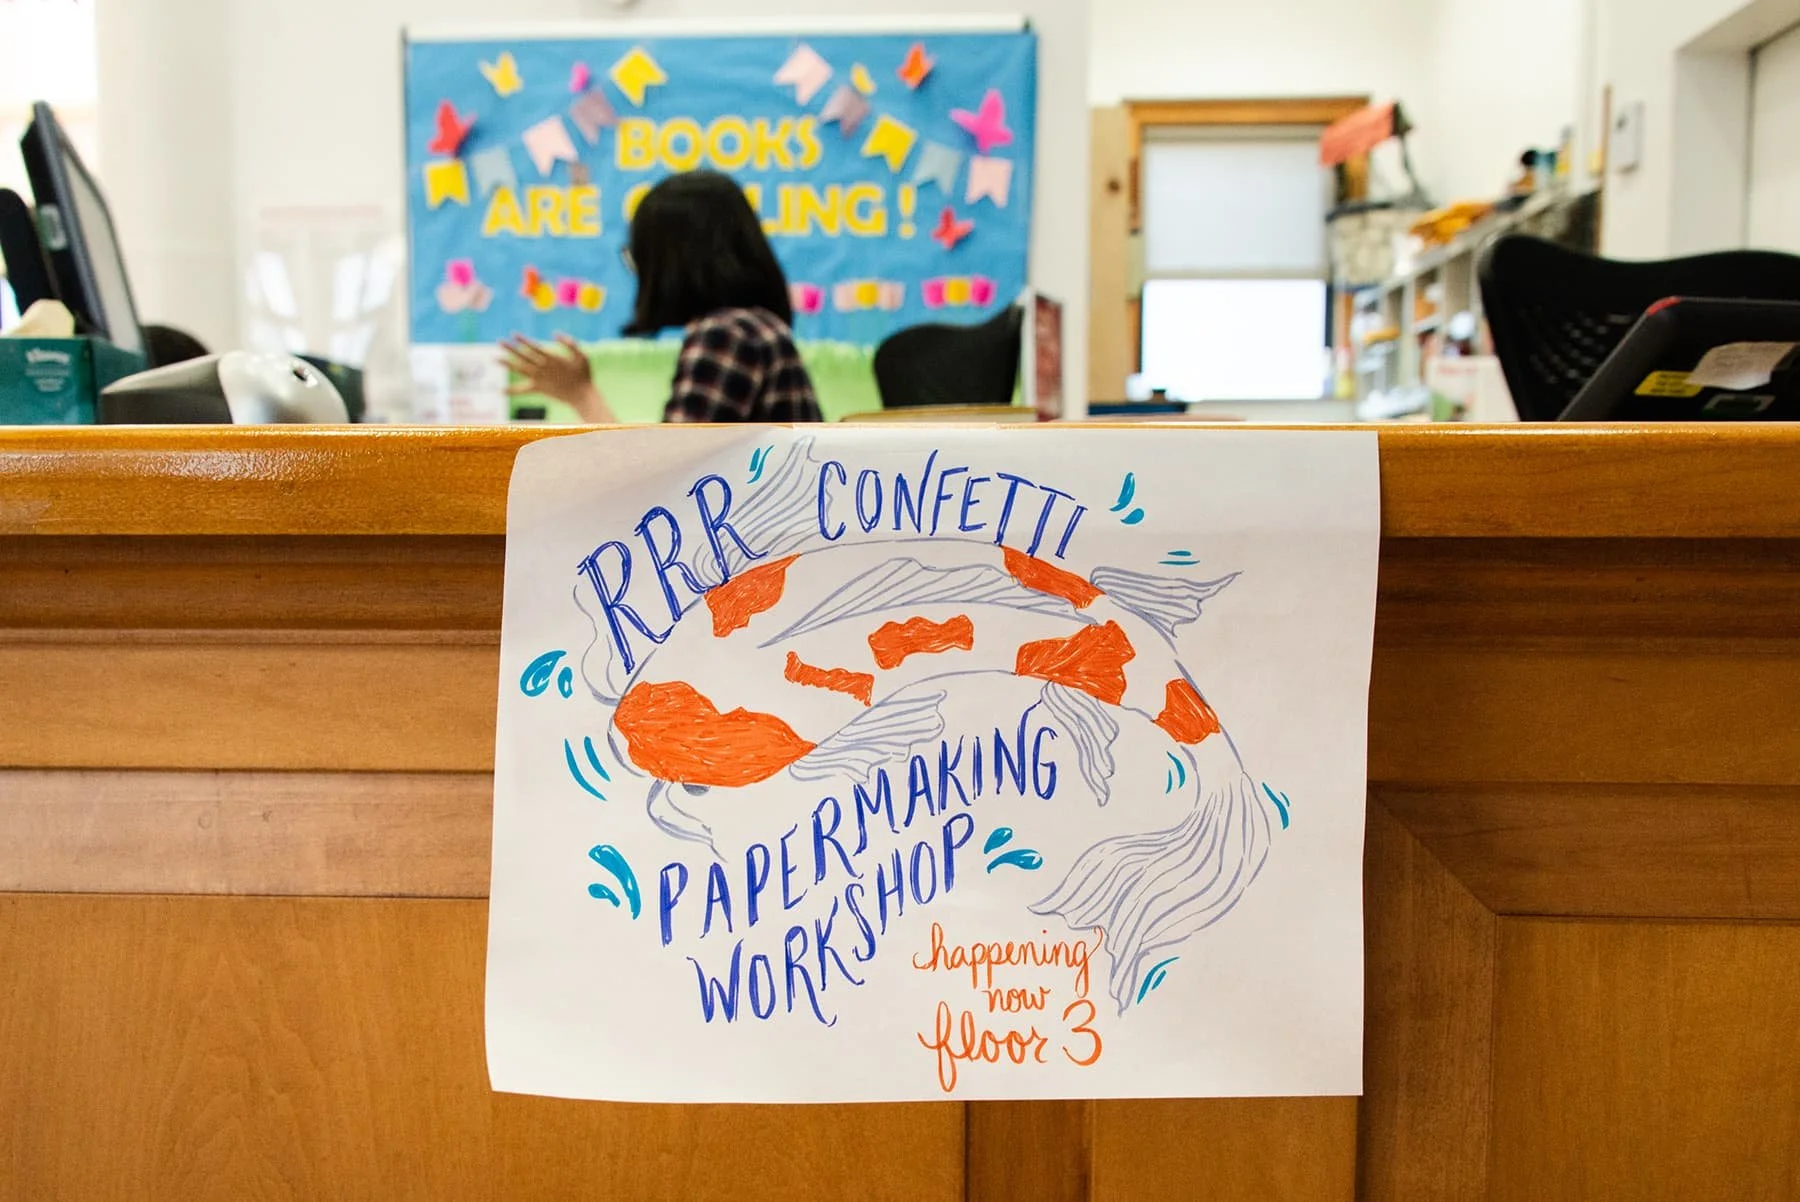 BOOKS
ARE LING!
Kleenex
RRR CONFETTI
PAPERMAKING
WORKSHOP
happening
now
floor 3